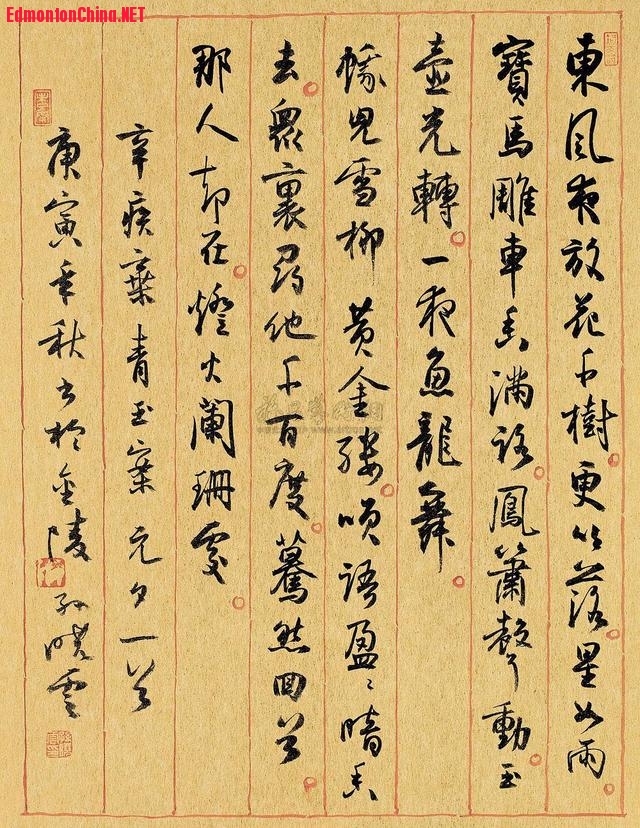 EdmontonChina.NET
東風夜放花千樹更吹落星如雨
寶馬雕車香滿路鳳簫聲動玉
壺光轉一夜魚龍舞
蛾兒雪柳黃金縷咲語盈〻暗香
去眾裏尋他千百度驀然回首
那人却在燈火闌珊處
辛疾棄青玉案元夕一首
庚寅年秋書於金陵孫曉雲